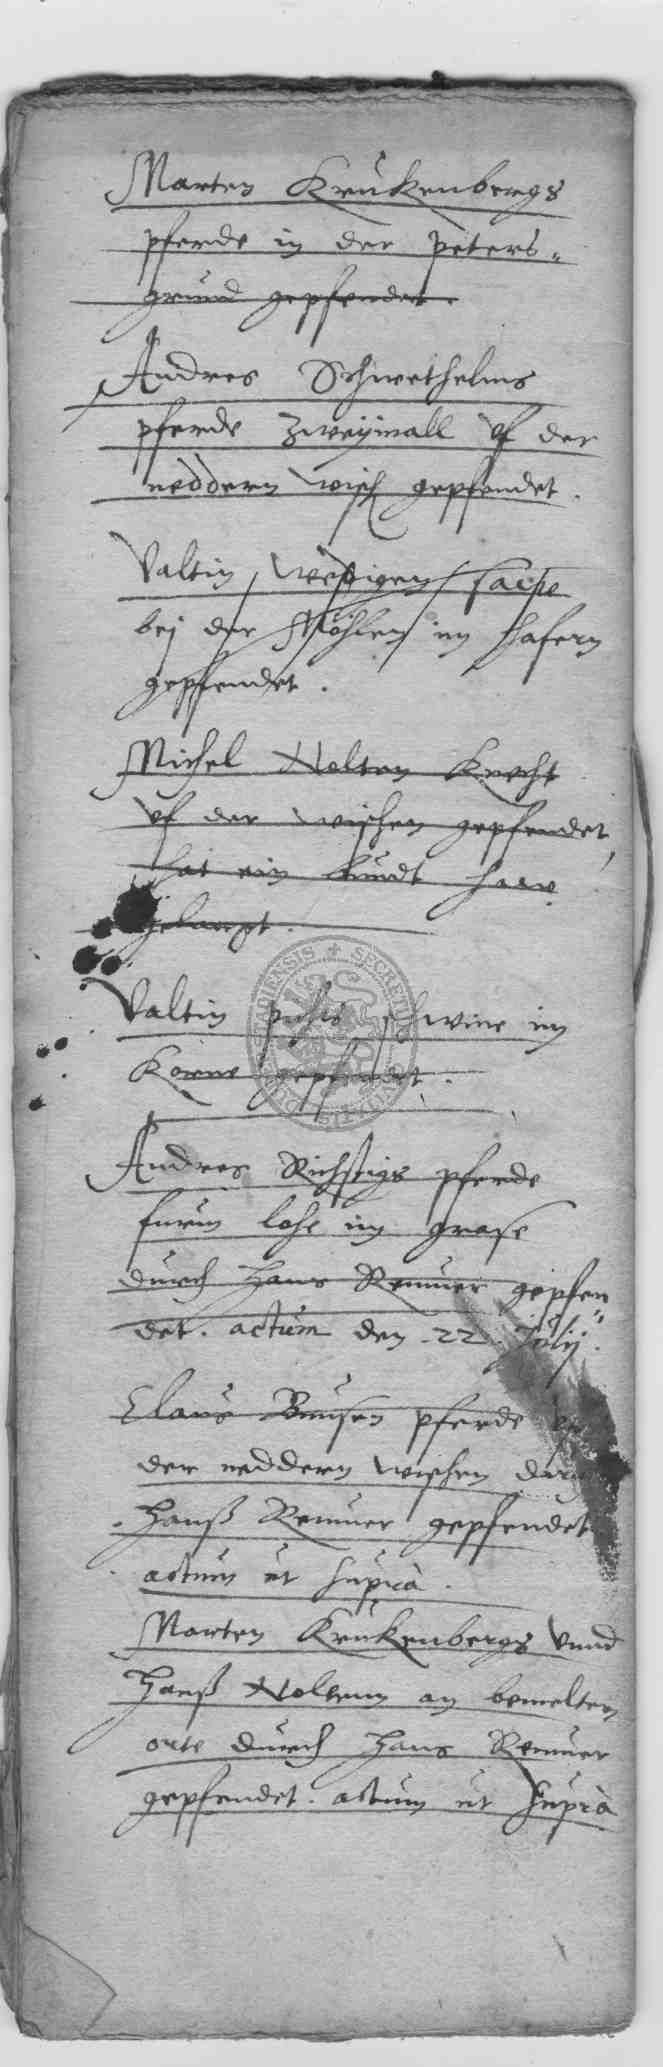 Marten Krukenbergs
pferde in der peters„
grund gepfendet.
Andres Schwethelms
pferde zweymall vf der
neddern wisch gepfendet.
Valtin
bej der Möhlen im hafern
gepfendet.
Michel Nolten Knecht
vf der wischen gepfendet,
hat ein bundt
gelangt.
Valtin schwine im
Körne gepfendet.
Andres Richstigs pferde
furm lohe im grase
durch Hans Remmer gepfen„
det. actum den .22. Julij.
Claus pferde vf
der neddern wischen durch
Hanß Remmer gepfendet
actum ut supra.
Marten Krukenbergs vnnd
Hanß Noltenn an bemelten
orte durch Hans Remmer
gepfendet. actum ut supra